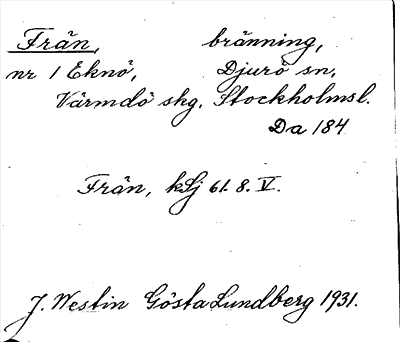 Från, bränning,
nr 1 Eknö, Djurö sn,
Värmdö skg. Stockholmsl.
Da 184
Från, kSj 61. 8. V.
J. Westin Gösta Lundberg 1931.